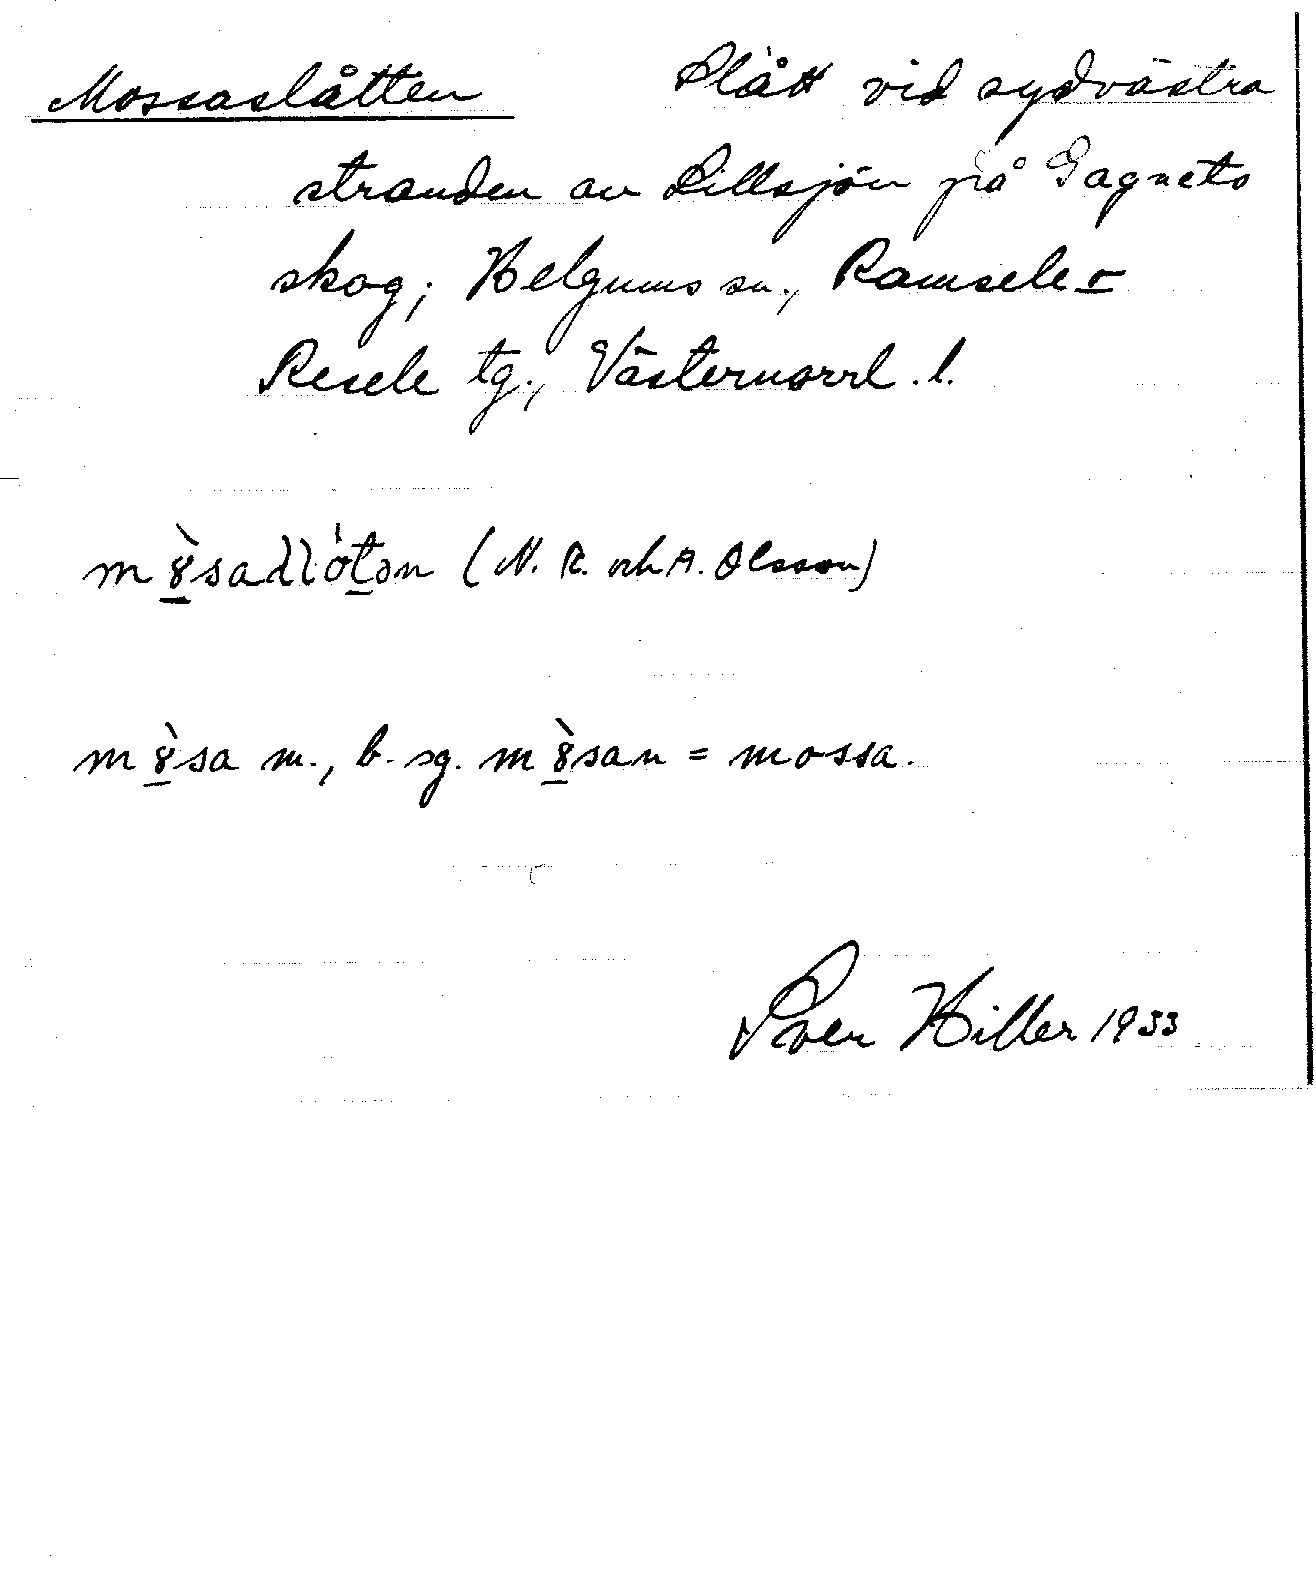 Mossaslåtten Slått vid sydvästra
stranden av Lillsjön på Gagnets
skog; Helgums sn., Ramsele-
Resele tg., Västernorrl. l.
mȯ̱̀sadlötən (N. R. och A. Olsson)
m8̱̀sa m., b. sg. m8̱̀san = mossa.
Sven Hiller 1933